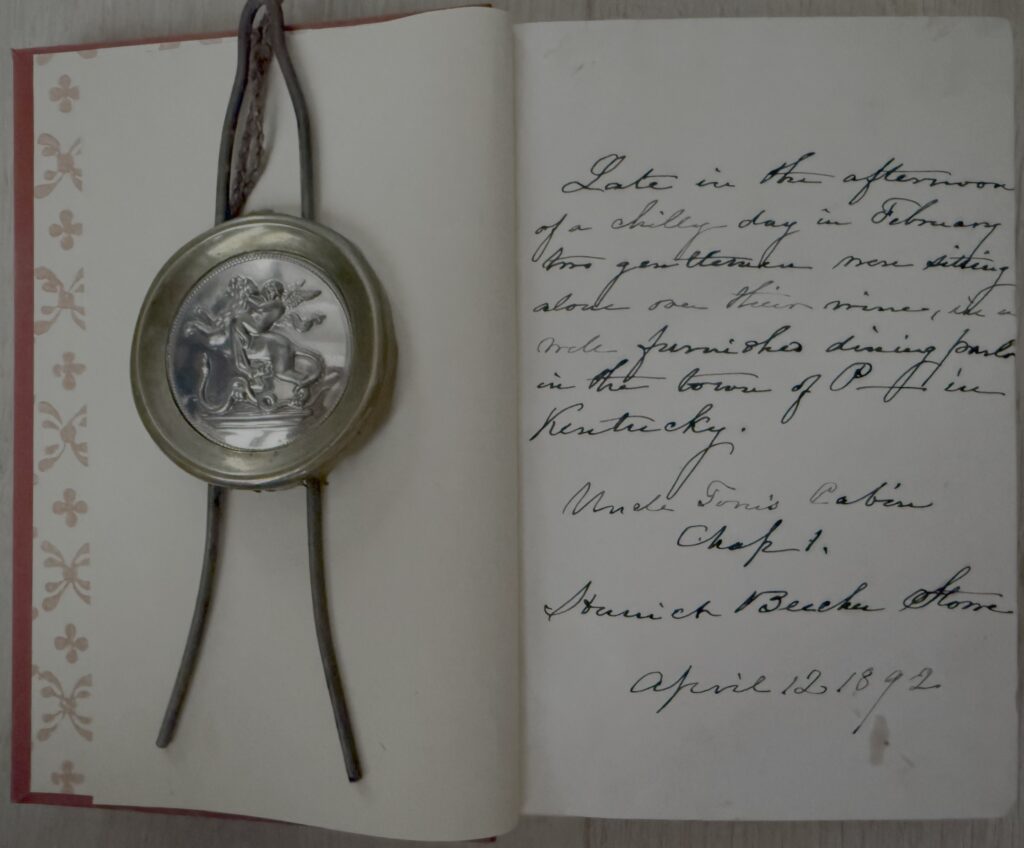 Late in the afternoon
of a chilly day in February
two gentlemen were sitting
alone over their wine, in a
well furnished dining parlor
in the town of P— in
Kentucky.
Uncle Tom's Cabin
Chap 1.
Harriet Beecher Stowe
April 12 1892